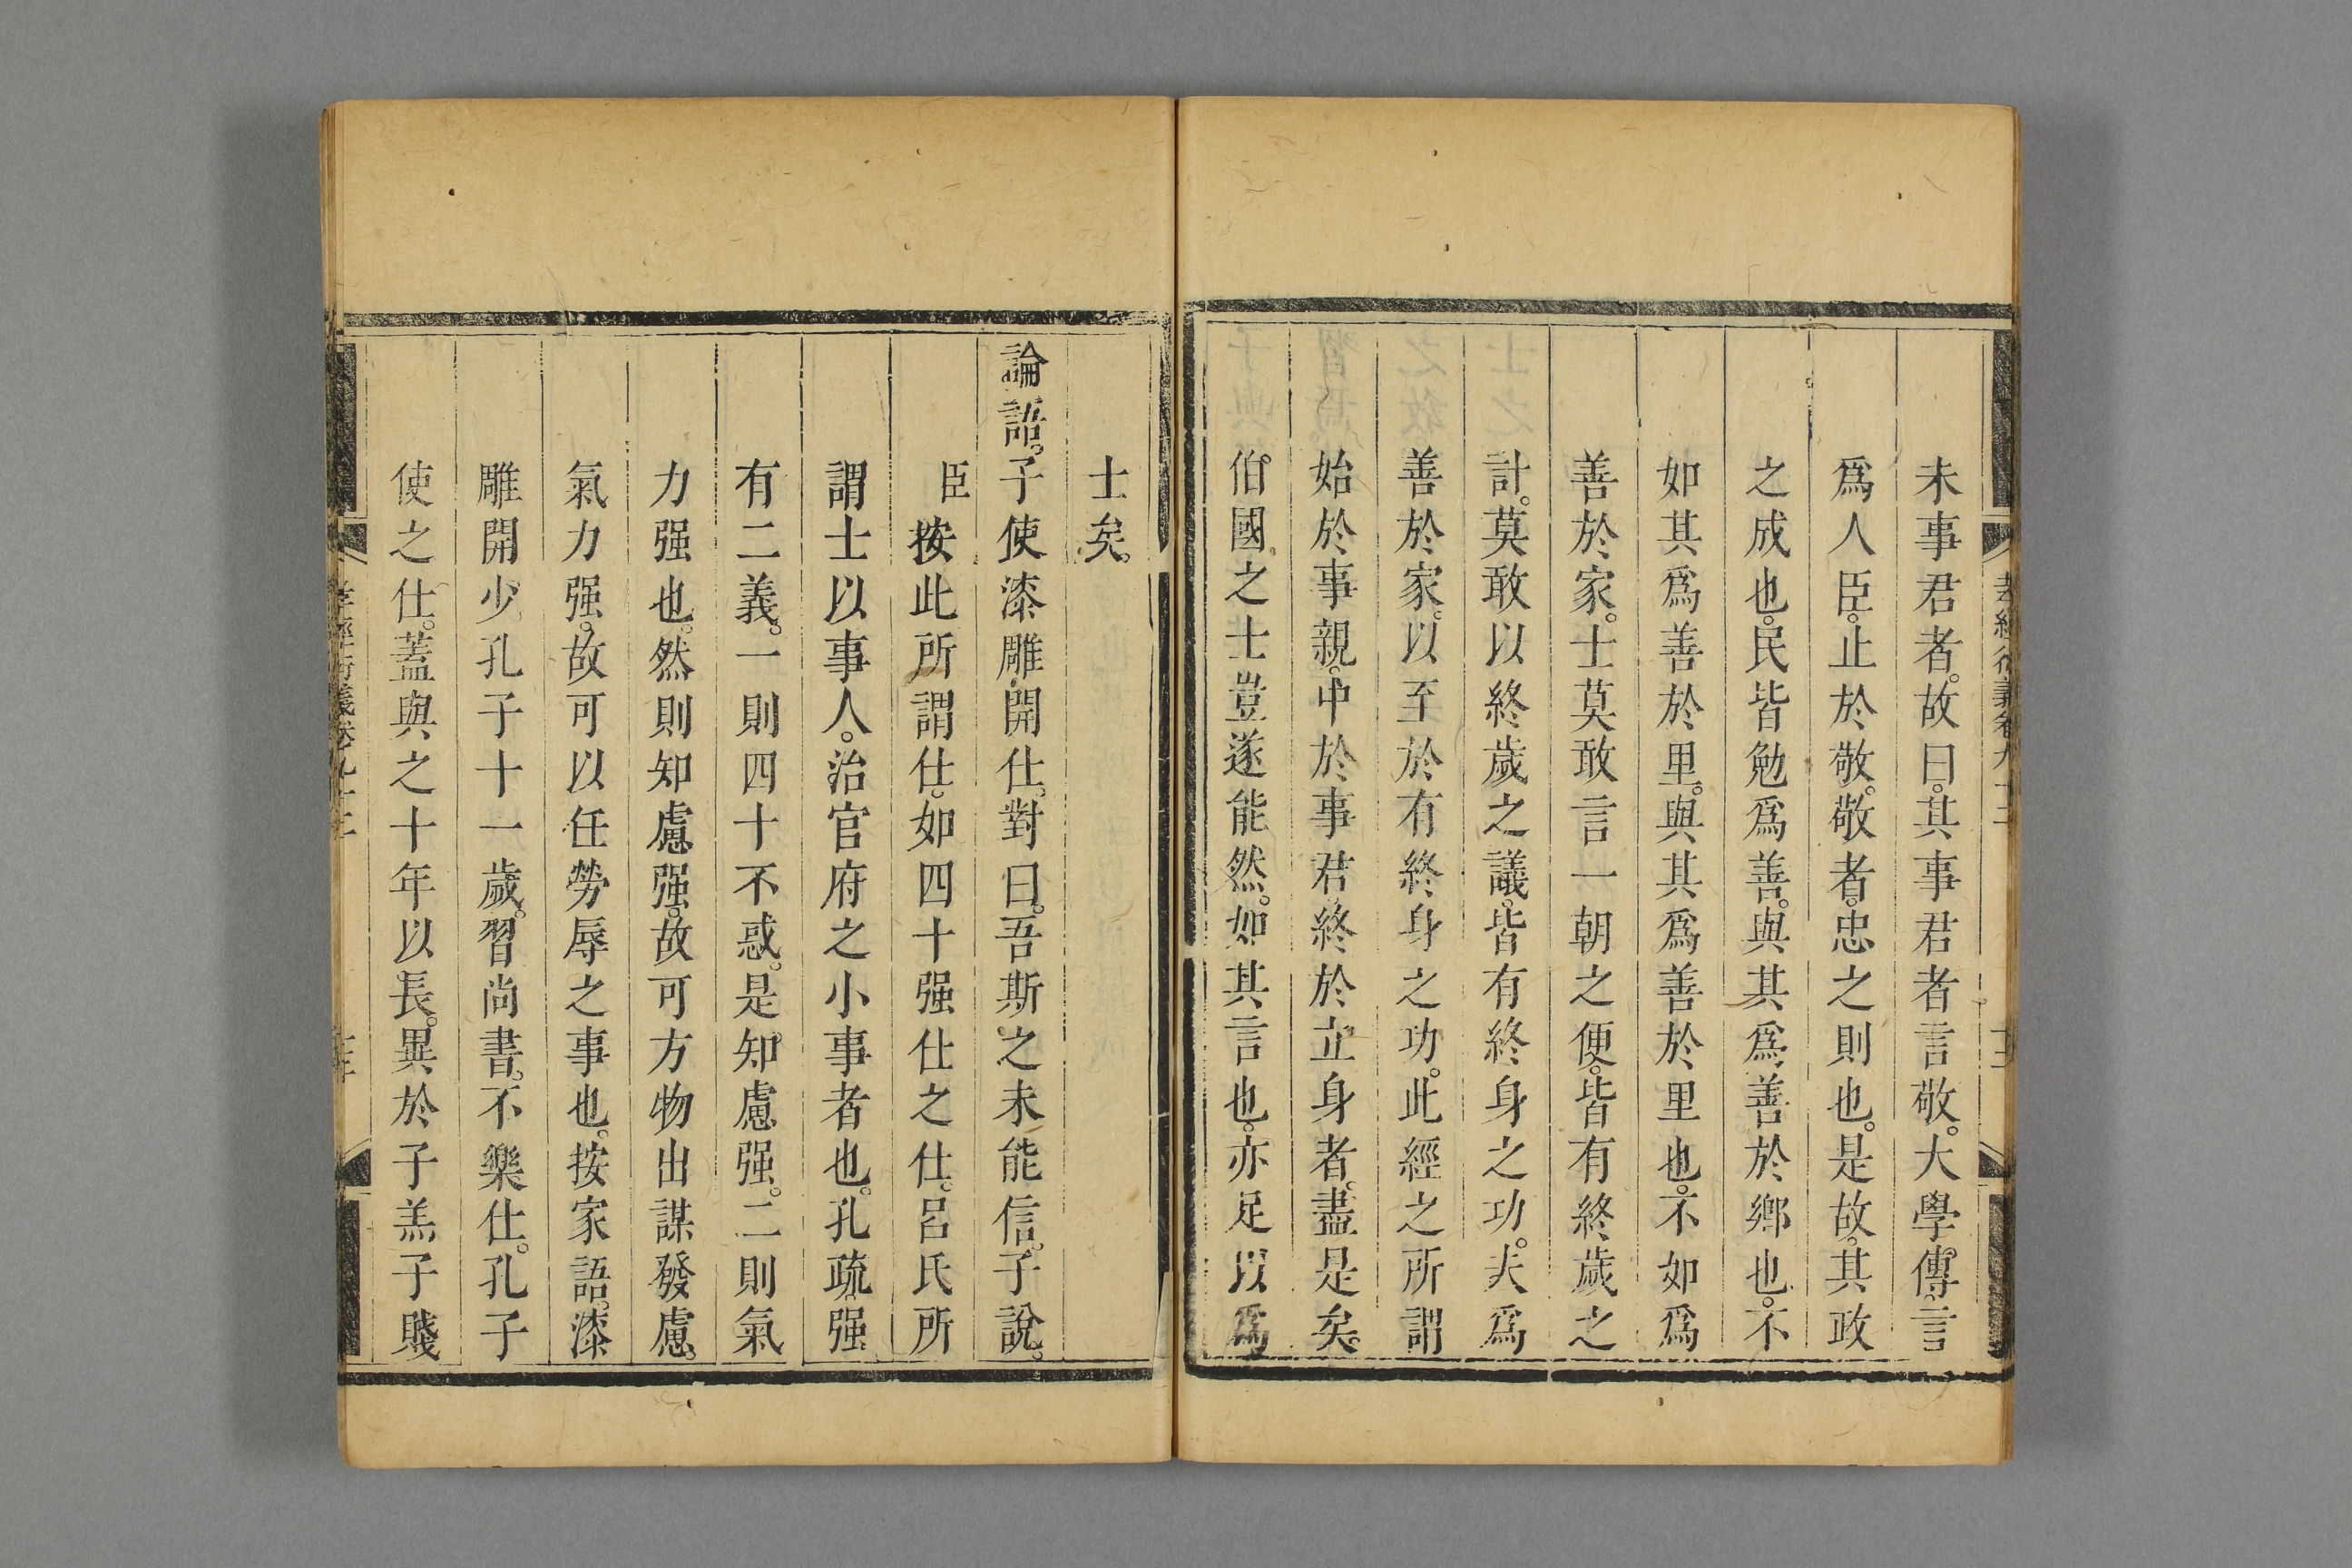 未事君者。故曰。其事君者言敬。大學傳。言
爲人臣。止於敬。敬者。忠之則也。是故。其政
之成也。民皆勉爲善。與其爲善於鄉也。不
如其爲善於里。與其爲善於里也。不如爲
善於家。士莫敢言一朝之便。皆有終歲之
計。莫敢以終歲之議。皆有終身之功。夫爲
善於家。以至於有終身之功。此經之所謂
始於事親。中於事君。終於立身者。盡是矣。
伯國之士豈遂能然。如其言也。亦足以爲
士矣。
論語。子使漆雕開仕。對曰。吾斯之未能信。子說。
臣按此所謂仕。如四十强仕之仕。呂氏所
謂士以事人。治官府之小事者也。孔疏。强
有二義。一則四十不惑。是知慮强。二則氣
力强也。然則知慮强。故可方物出謀發慮。
氣力强。故可以任勞辱之事也。按家語。漆
雕開少孔子十一歲。習尚書。不樂仕。孔子
使之仕。蓋與之十年以長。異於子羔子賤